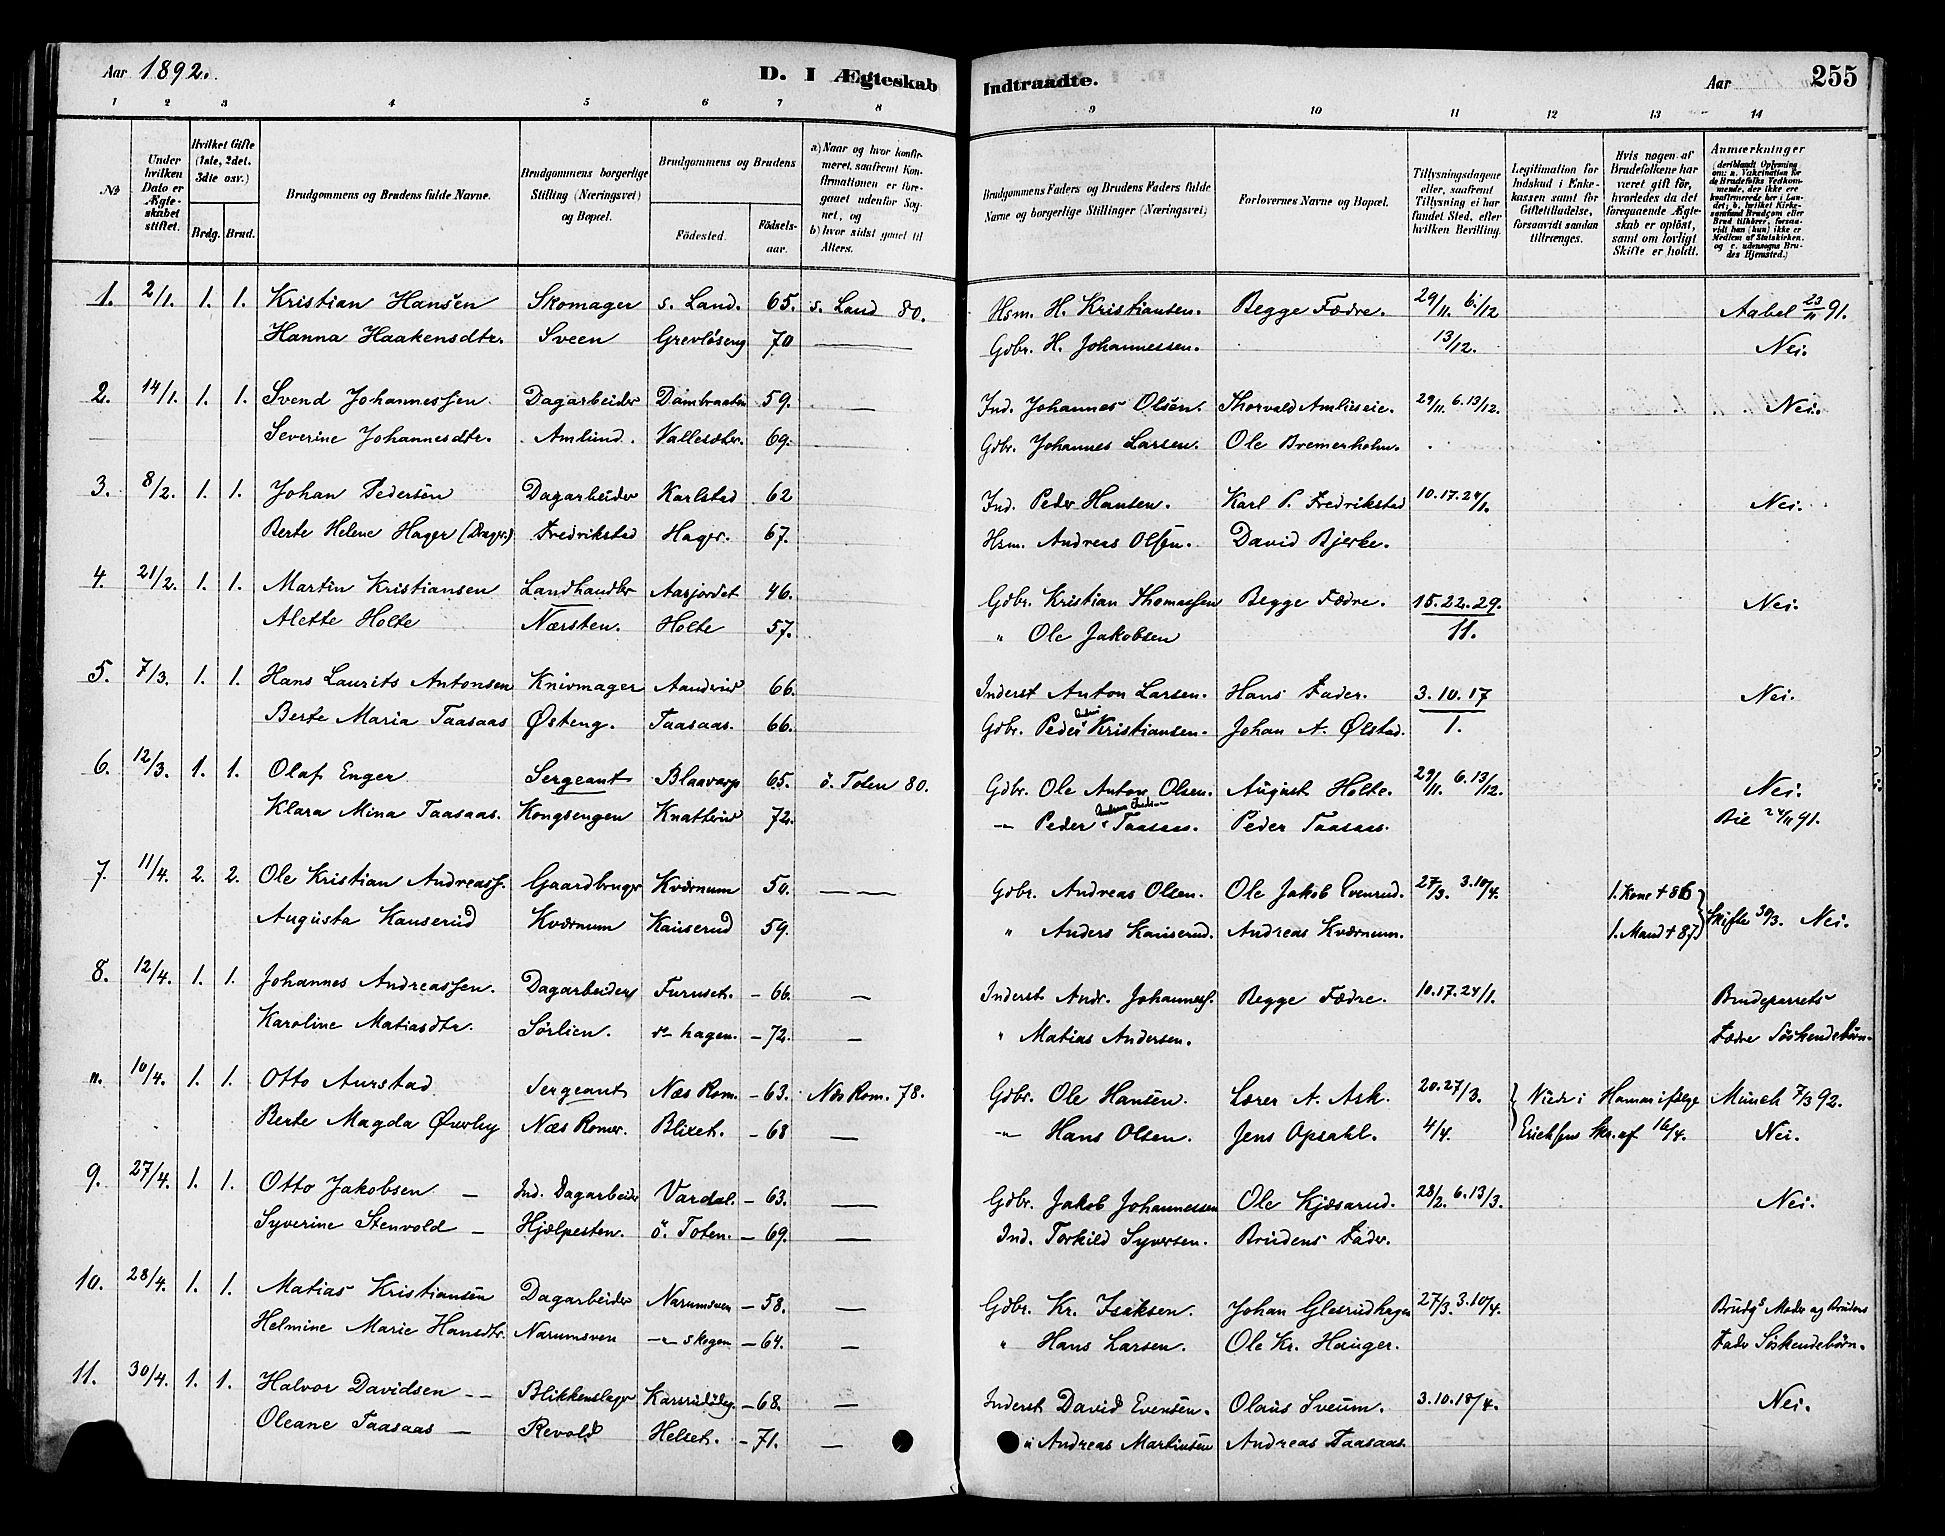 Aar 1892.
D. I Ægteskab Indtraadte.
Aar
255
1 2 3 4 5 6 7 8 9 10 11 12 13 14
No
Under hvilken Dato er Ægteskabet stiftet.
Hvilket Gifte (1ste, 2det. 3die osv.)
Brdg. Brud.
Brudgommens og Brudens fulde Navne.
Brudgommens borgerlige Stilling (Næringsvei) og Bopæl.
Brudgommens og Brudens
Fødested. Fødsels-aar.
a) Naar og hvor konfirmeret, saafremt Konfirmationen er foregaaet udenfor Sognet, og
b) hvor sidst gaaet til Alters.
Brudgommens Faders og Brudens Faders fulde Navne og borgerlige Stillinger (Næringsvei)
Forlovernes Navne og Bopæl.
Tillysningsdagene eller, saafremt Tillysning ei har fundet Sted, efter hvilken Bevilling.
Legitimation for Indskud i Enkekassen samt for Giftetilladelse, forsaavidt saadan tiltrænges.
Hvis nogen af Brudefolkene har været gift før, hvorledes da det foregaaende Ægteskab er opløst, samt om lovligt Skifte er holdt.
Anmærkninger
(deriblandt Oplysning om: a. Vakcination for de Brudefolks Vedkommende, der ikke ere konfirmerede her i Landet; b. hvilket Kirkesamfund Brudgom eller Brud tilhører, forsaavidt han (hun) ikke er Medlem af Statskirken. og c. udensogns Brudes Hjemsted.)
1. 2/1. 1. 1. Kristian Hansen Skomager s. Land. 65. s. Land 80. Hsm. H. Kristiansen. Begge Fædre. 29/11. 6./12 Aabel 23/11 91.
Hanna Haakensdtr. Sveen Grevløseng 70 — Gdbr. H. Johannessen. 13/12. Nei.
2. 14/1. 1. 1. Svend Johannessen Dagarbeider Dambraaten 59. — Ind. Johannes Olsen. Thorvald Amlieseie. 29/11. 6. 13/12. Nei.
Severine Johannesdtr. Amlund. Vallesætr. 69. Gdbr. Johannes Larsen. Ole Bremerholm.
3. 8/2. 1. 1. Johan Pedersen Dagarbeider Karlstad 62 Ind. Peder Hansen. Karl P. Fredrikstad 10. 17. 24/1. Nei.
Berte Helene Hager Fredrikstad Hager. 67. Hsm. Andreas Olsen. David Bjerke.
4. 21/2. 1. 1. Martin Kristiansen Landhandler Aasjordet 46. Gdbr. Kristian Thomassen Begge Fædre. 15. 22. 29. Nei.
Alette Holte Næsten. Holte 57. " Ole Jakobsen 11.
5. 7/3. 1. 1. Hans Laurits Antonsen Knivmager Aandrud 66. Inderst Anton Larsen. Hans Fader. 3. 10. 17 Nei.
Berte Maria Taasaas Østeng. Taasaas. 66. Gdbr. Peder Kristiansen. Johan A. Ølstad. 1.
6. 12/3. 1. 1. Olaf Enger Sergeant Blaavarp 65. ö. Toten 80. Gdbr. Ole Anton Olsen. August Holte. 29/11. 6. 13/12. Nei.
Klara Mina Taasaas. Kongsengen Knatterud 72. — Peder Taasaas. Peder Taasaas. Bie 24/11 91.
7. 11/4. 2. 2. Ole Kristian Andreass. Gaardbruger Kværnum 50. — — Gdbr. Andreas Olsen. Ole Jakob Evenrud. 27/3. 3. 10/4. 1. Kone + 86
Augusta Kauserud Kværnum Kauserud 59. " Anders Kauserud. Andreas Kværnum. 1. Mand + 87 Skifte 30/3. Nei.
8. 12/4. 1. 1. Johannes Andreassen. Dagarbeider Furuset. – 66. — Inderst Andr. Johanness. Begge Fædre. 10. 17. 24/1. Brudeparrets
Karoline Matiasdtr. Sørlien. hagen. – 72. — " Matias Andersen. Fædre Söskendebörn.
n. 10/4. 1. 1. Otto Aurstad Sergeant Næs Rom. – 63. Næs Rom. 78. Gdbr. Ole Hansen. Lærer A. Ask. 20. 27/3. Viede i Hamar ifølge Münch 7/3 92.
Berte Magda Øverby Næs Romer. Blixet. – 68 — " Hans Olsen. Jens Opsahl. 4/4. Erichsens Skr. af 16/4. Nei.
9. 27/4. 1. 1. Otto Jakobsen – Ind. Dagarbeider Vardal. – 63. — Gdbr. Jakob Johannessen Ole Kjæsarud. 28/2. 6. 13/3. Nei.
Syverine Stenvold – Hjælpesten. ö. Toten. – 69. — Ind. Torkild Syversen. Brudens Fader.
10. 28/4. 1. 1. Matias Kristiansen Dagarbeider Narumsven – 58. — Gdbr. Kr. Isaksen. Johan Glesrudhagen 27/3. 3. 10/4. Brudgs Moder og Brudens
Helmine Marie Hansdtr. Narumsven — skogen – 64. — " Hans Larsen. Ole Kr. Hauger. Fader Söskendebörn.
11. 30/4. 1. 1. Halvor Davidsen – – Blikkenslager – 68. — Inderst David Evensen. Olaus Sveum. 3. 10. 18/4. Nei.
Oleane Taasaas – Revold Helset. – 71. — " Andreas Martinsen Andreas Taasaas.